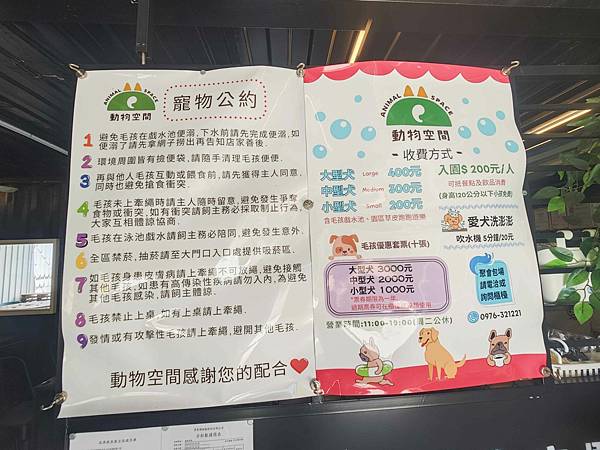 ANIMAL SPACE
動物空間
寵物公約
1 避免毛孩在戲水池便溺,下水前請先完成便溺,如
便溺了請先拿網子撈出再告知店家善後.
2 環境周圍皆有撿便袋,請隨手清理毛孩便便.
3 再與他人毛孩互動或餵食前,請先獲得主人同意,
同時也避免搶食衝突.
4 毛孩未上牽繩時請主人隨時留意,避免發生爭奪
食物或衝突,如有衝突請飼主務必採取制止行為,
大家互相體諒協商.
5 毛孩在泳池戲水請飼主務必陪同,避免發生意外.
6 全區禁菸,抽菸請至大門口入口處提供吸菸區.
7 如毛孩身患皮膚病請上牽繩不可放繩,避免接觸
其他毛孩,如患有高傳染性疾病請勿入內,為避免
其他毛孩感染,請飼主體諒.
8 毛孩禁止上桌,如有上桌請上牽繩.
9 發情或有攻擊性毛孩請上牽繩,避開其他毛孩.
動物空間感謝您的配合
ANIMAL SPACE
動物空間
- 收費方式 -
大型犬 Large 400元
中型犬 Medium 300元
小型犬 Small 200元
含毛孩戲水池、園區草皮跑跑遊樂
入園$ 200元/人
可抵餐點及飲品消費
(身高120公分以下小孩免費)
愛犬洗澎澎
吹水機 5分鐘/20元
毛孩優惠套票(十張)
大型犬 3000元
中型犬 2000元
小型犬 1000元
*票券期限為一年,
營業時間:11:00-19:00(周二公休)
聚會包場
請電洽或
詢問櫃檯
0976-321221